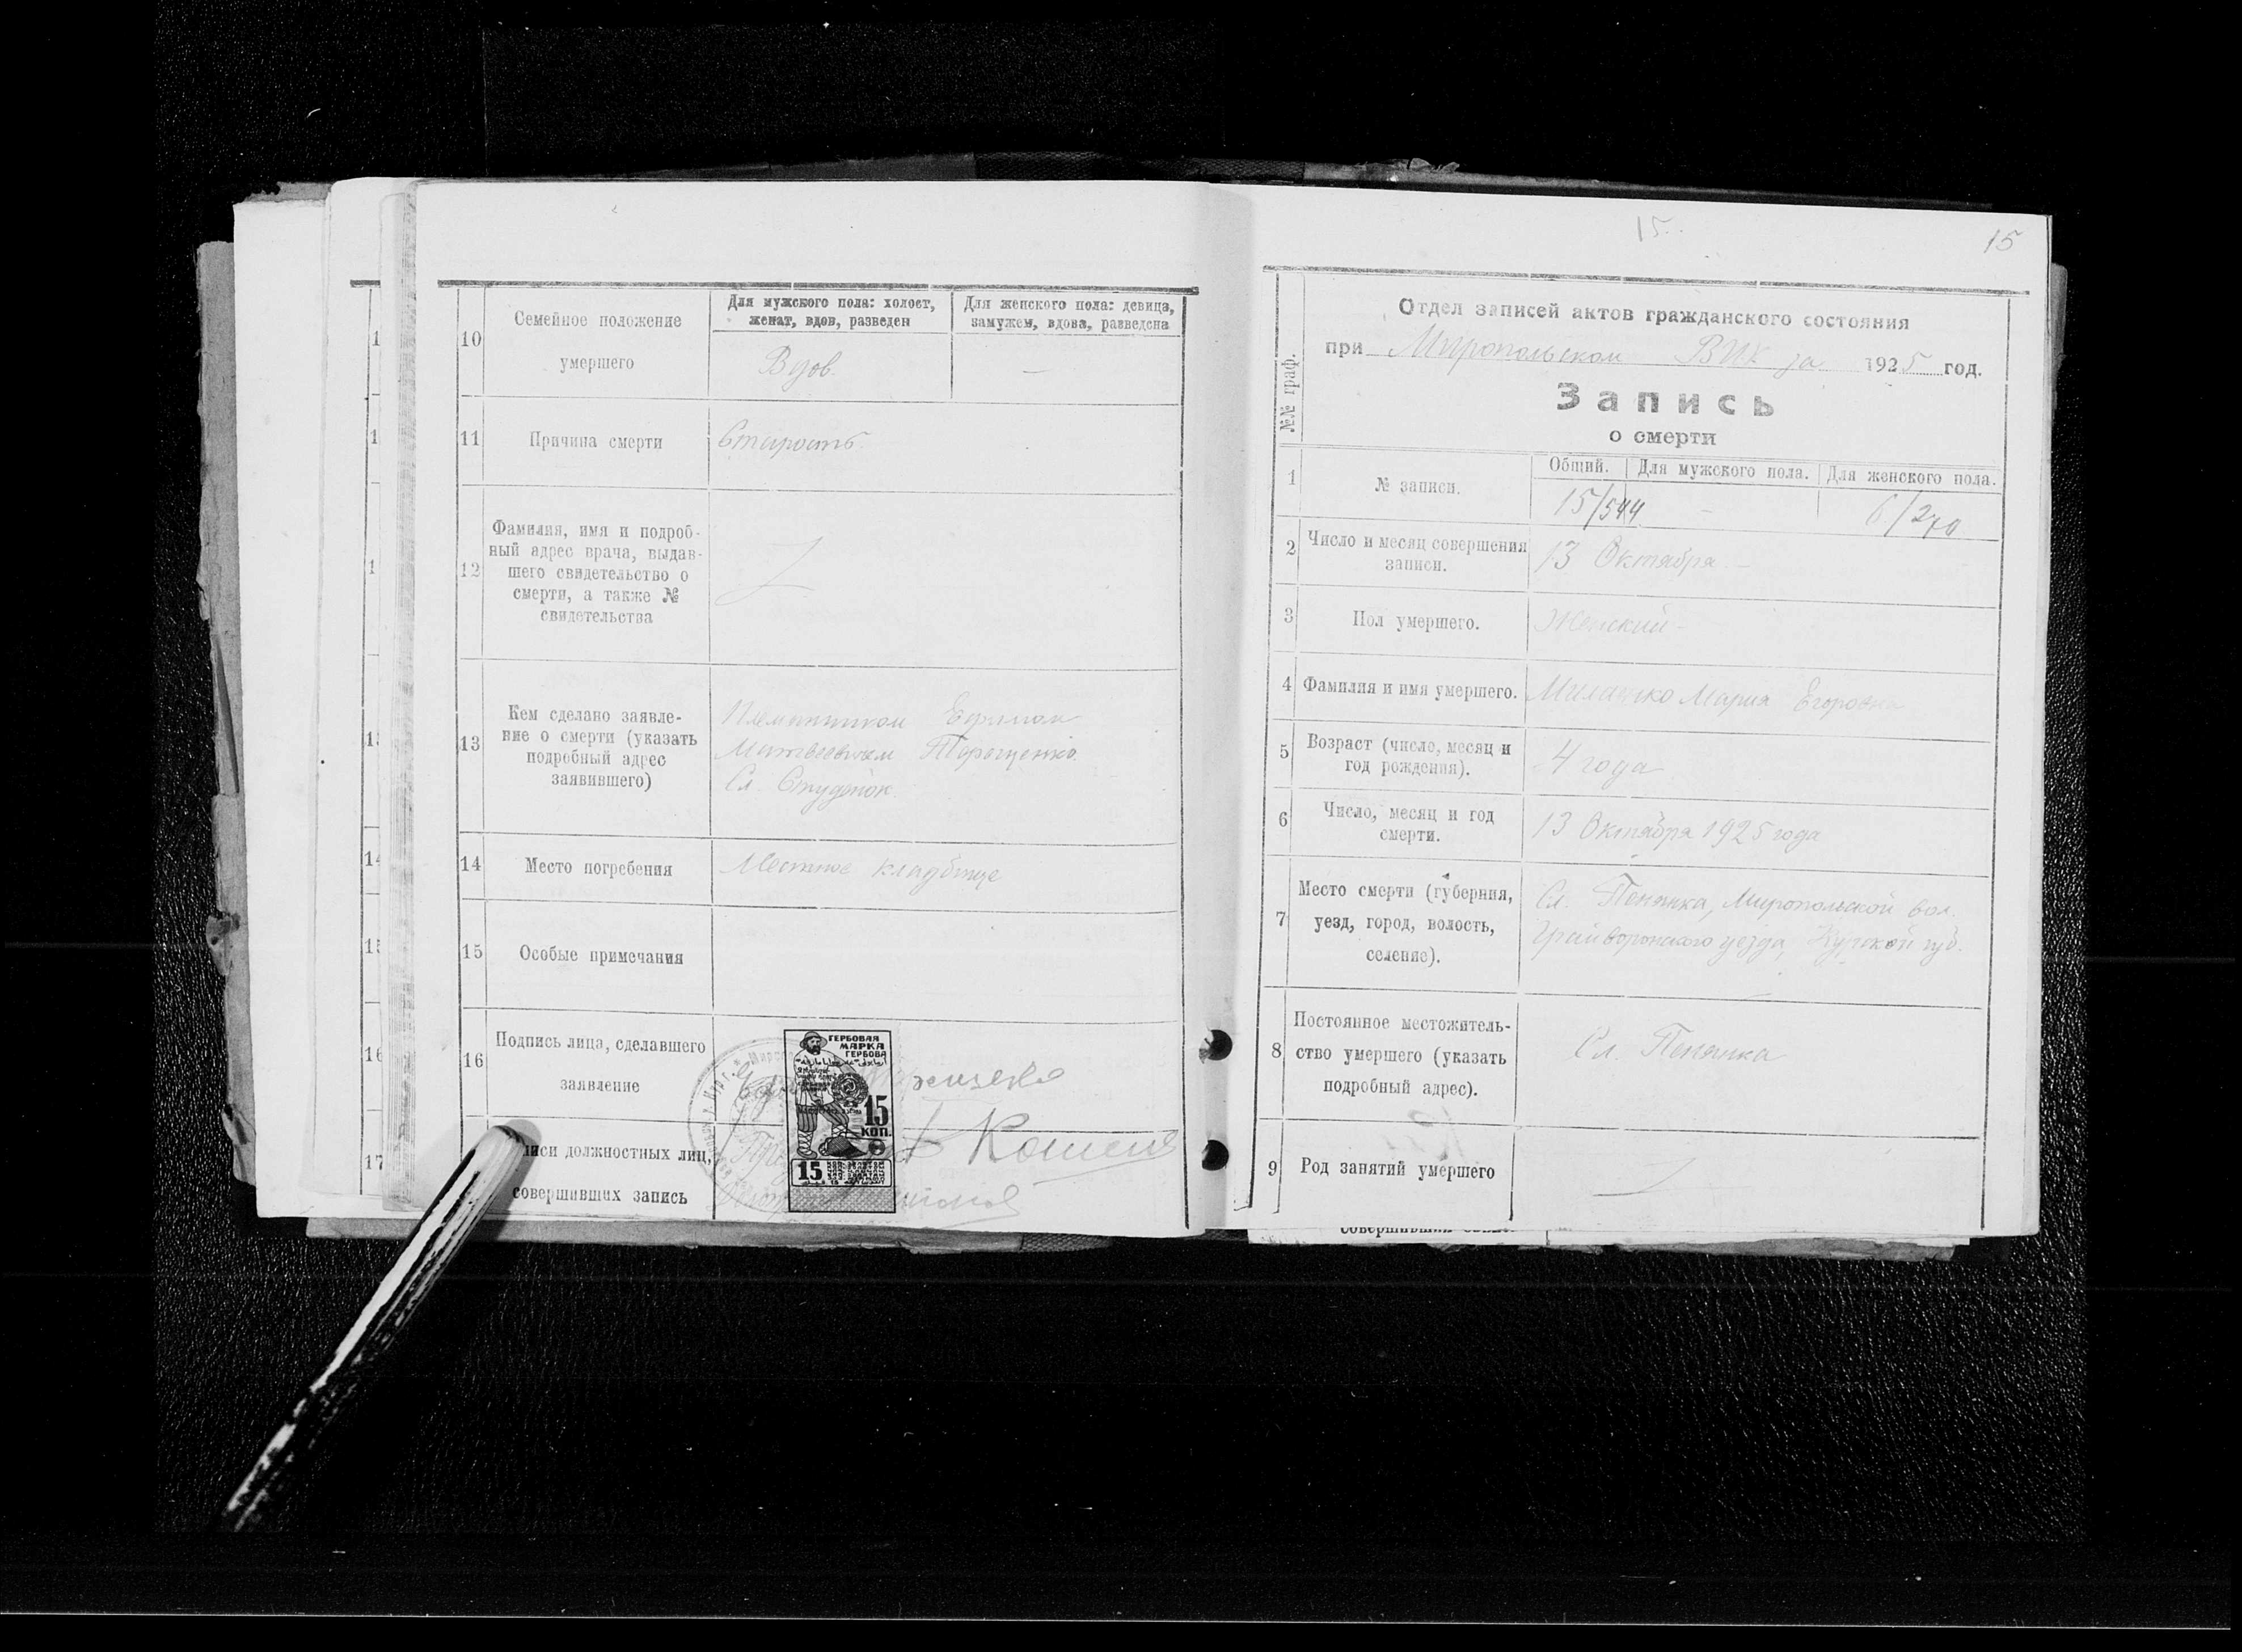 10
Семейное положение
умершего
Для мужского пола: холост,
женат, вдов, разведен
Для женского пола: девица,
замужем, вдова, разведена
Вдов.
—
11
Причина смерти
Старость.
12
Фамилия, имя и подроб-
ный адрес врача, выдав-
шего свидетельство о
смерти, а также №
свидетельства
13
Кем сделано заявле-
ние о смерти (указать
подробный адрес
заявившего)
Племянником
Матвеевичем
Сл. Студенок
14
Место погребения
Местное кладбище
15
Особые примечания
16
Подпись лица, сделавшего
заявление
ГЕРБОВАЯ
МАРКА
ГЕРБОВА
15
КОП.
15
должностных лиц,
совершивших запись
15.
15
№№ граф.
Отдел записей актов гражданского состояния
при Миропольском ВИК за 1925 год.
Запись
о смерти
1
№ записи.
Общий.
Для мужского пола.
Для женского пола.
15/544
–
6/270
2
Число и месяц совершения
записи.
13 Октября –
3
Пол умершего.
Женский –
4
Фамилия и имя умершего.
Мария Егоровна
5
Возраст (число, месяц и
год рождения).
4 года
6
Число, месяц и год
смерти.
13 Октября 1925 года
7
Место смерти (губерния,
уезд, город, волость,
селение).
Сл. Пенянка, Миропольской вол.
Грайворонского уезда, Курской губ.
8
Постоянное местожитель-
ство умершего (указать
подробный адрес).
Сл. Пенянка
9
Род занятий умершего